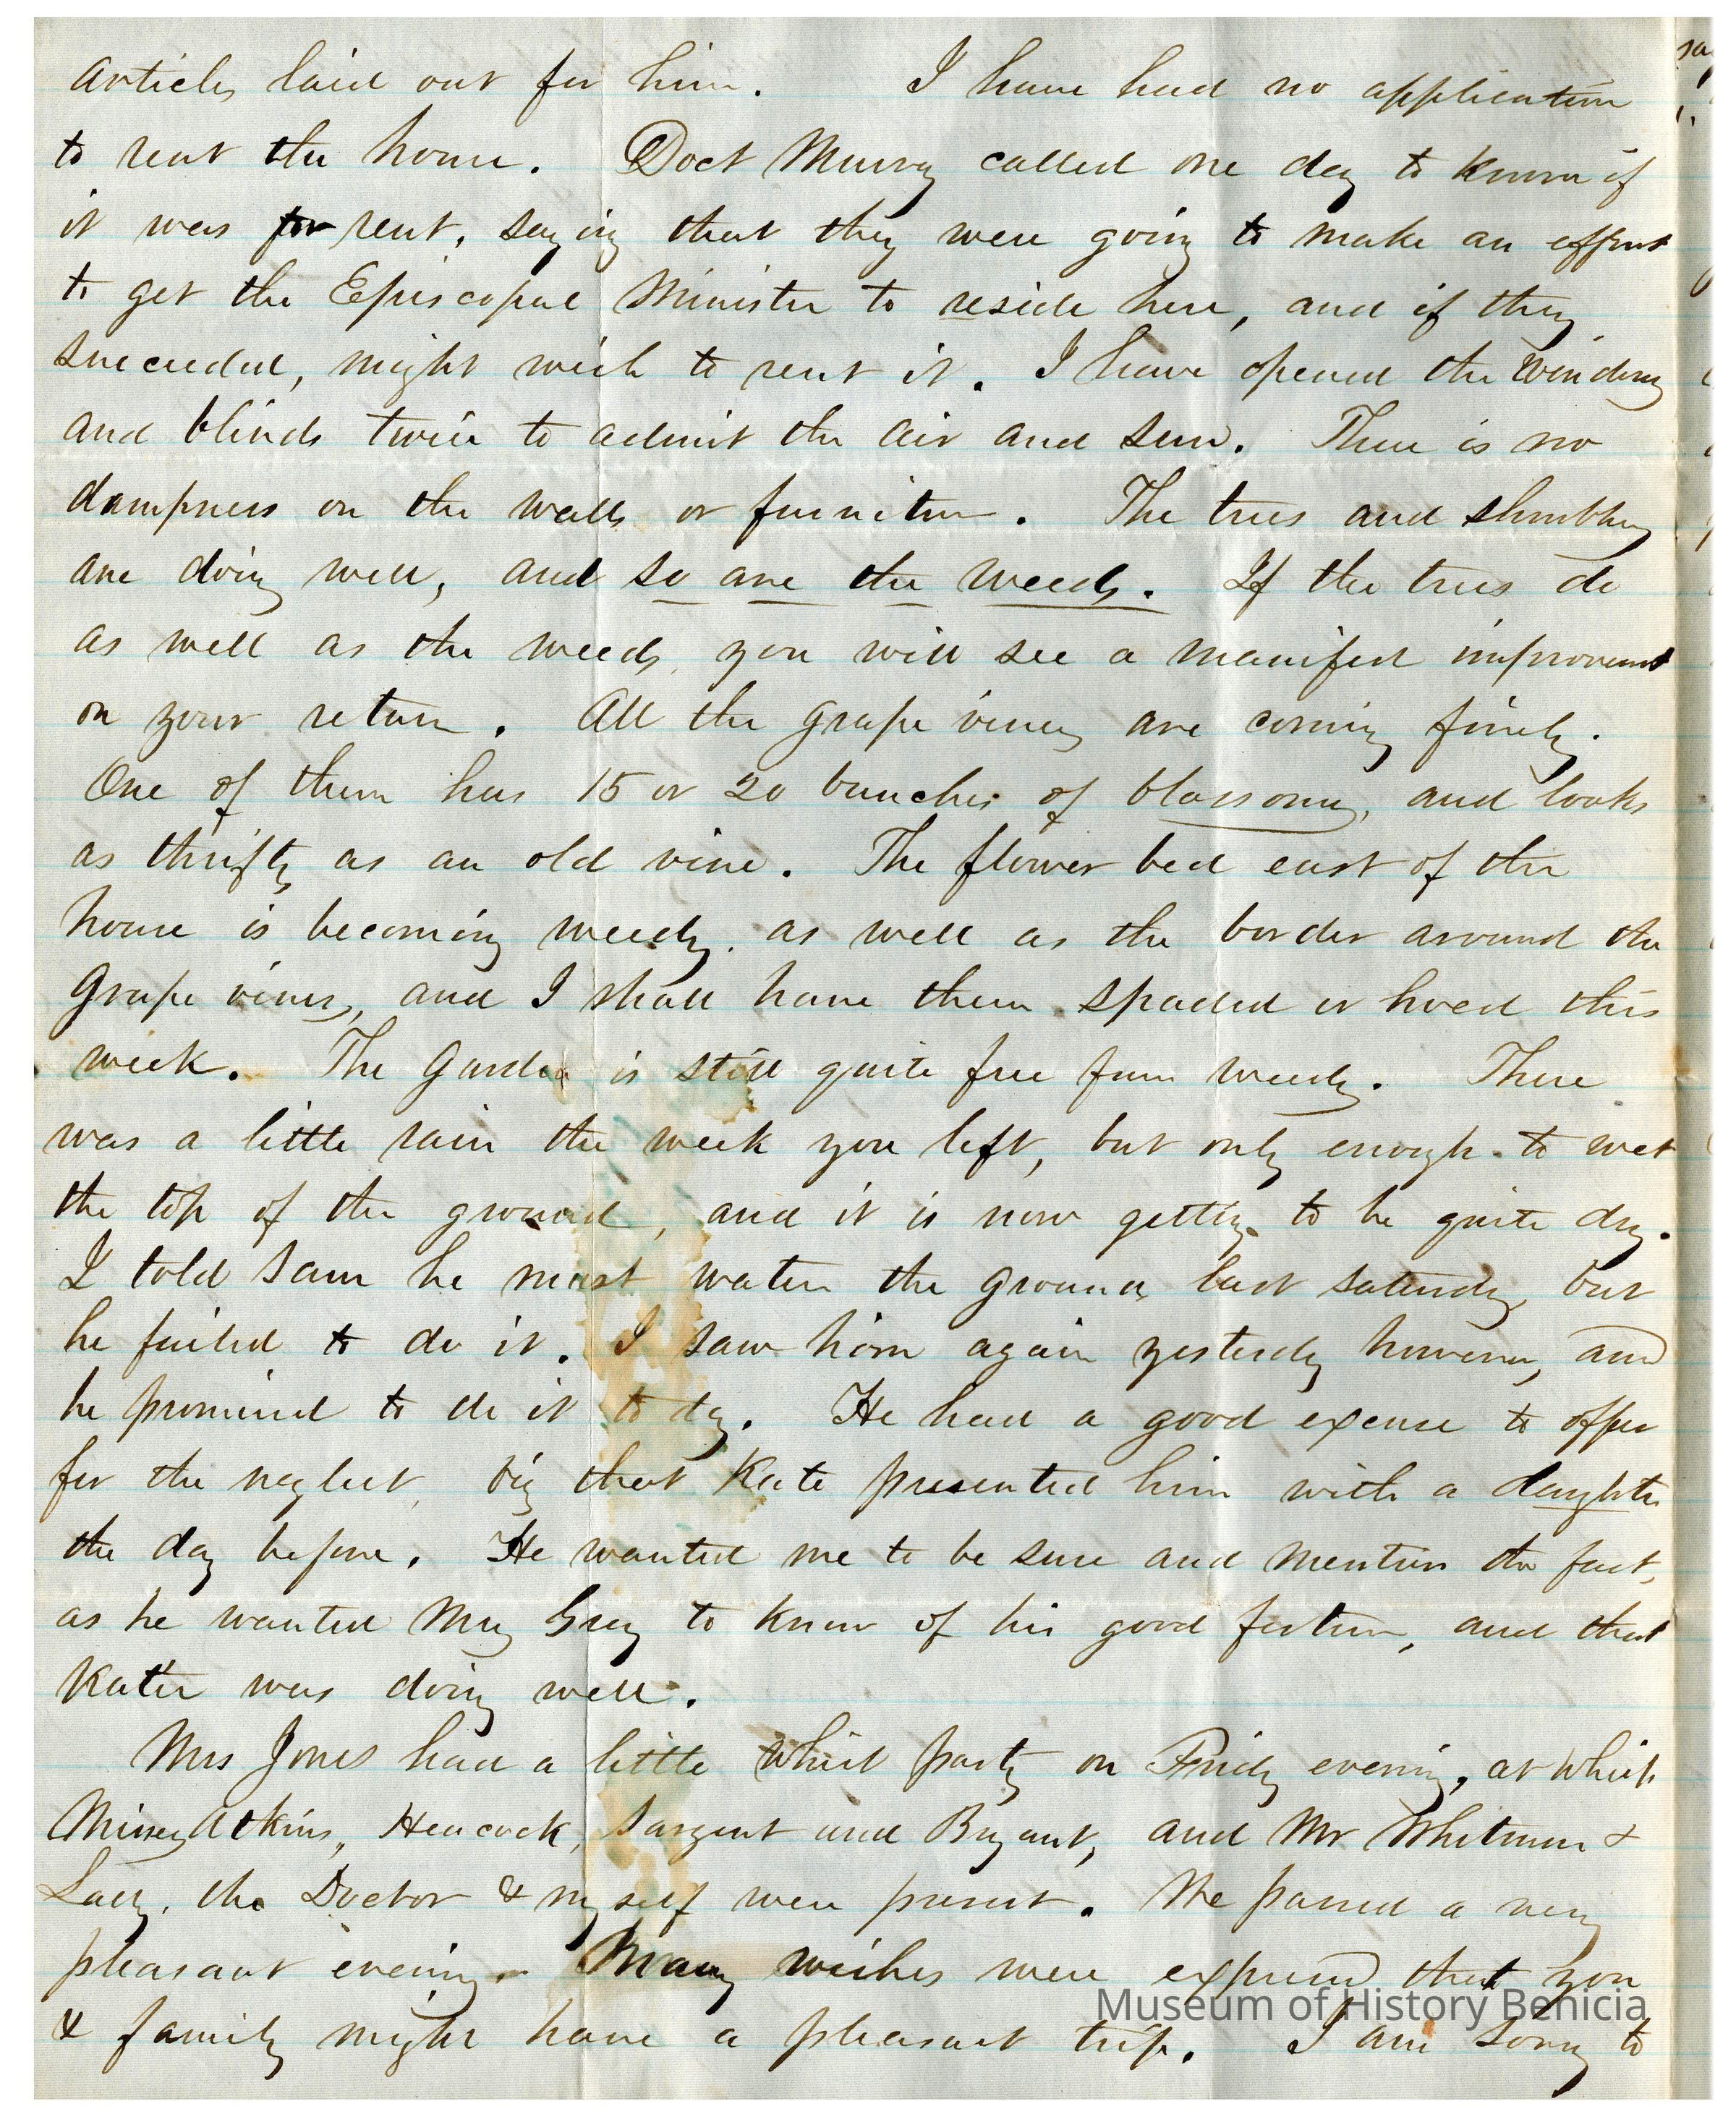 articles laid out for him. I have had no application
to rent the house. Doct Murray called one day to know if
it was for rent, saying that they were going to make an effort
to get the Episcopal Minister to reside here, and if they
succeeded, might wish to rent it. I have opened the windows
and blinds twice to admit the air and sun. There is no
dampness on the walls or furniture. The trees and shrubbery
are doing well, and so are the weeds. If the trees do
as well as the weeds, you will see a manifest improvement
on your return. All the grape vines are coming finely.
One of them has 15 or 20 bunches of blossoms, and looks
as thrifty as an old vine. The flower bed east of the
house is becoming weedy, as well as the border around the
Grape vines, and I shall have them spaded or hoed this
week. The Garden is still quite free from weeds. There
was a little rain the week you left, but only enough to wet
the top of the ground, and it is now getting to be quite dry.
I told Sam he must water the ground last saturday, but
he failed to do it. I saw him again yesterday however, and
he promised to do it to day. He had a good excuse to offer
for the neglect, viz that Kate presented him with a daughter
the day before. He wanted me to be sure and mention the fact,
as he wanted Mrs Grey to know of his good fortune, and that
Katie was doing well.
Mrs Jones had a little whist party on Friday evening, at which
Misses Atkins, Heacock, Sargent and Bryant, and Mr Whitman &
Lady, the Doctor & myself were present. We passed a very
pleasant evening. Many wishes were expressed that you
& family might have a pleasant trip. I am sorry to
Museum of History Benicia